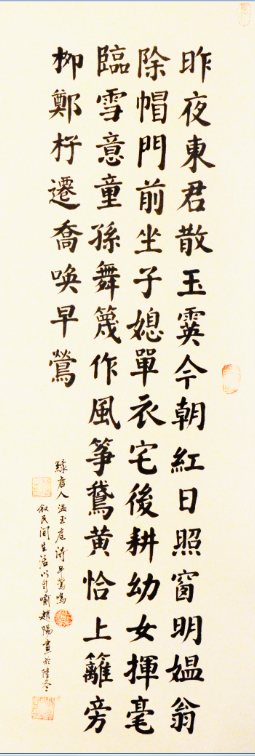 昨夜東君散玉霙今朝紅日照窗明媼翁
除帽門前坐子媳單衣宅後耕幼女揮毫
臨雪意童孫舞篾作風箏鵞黄恰上籬旁
栁鄭杍遷喬喚早鶯
叙民间生活以自喻